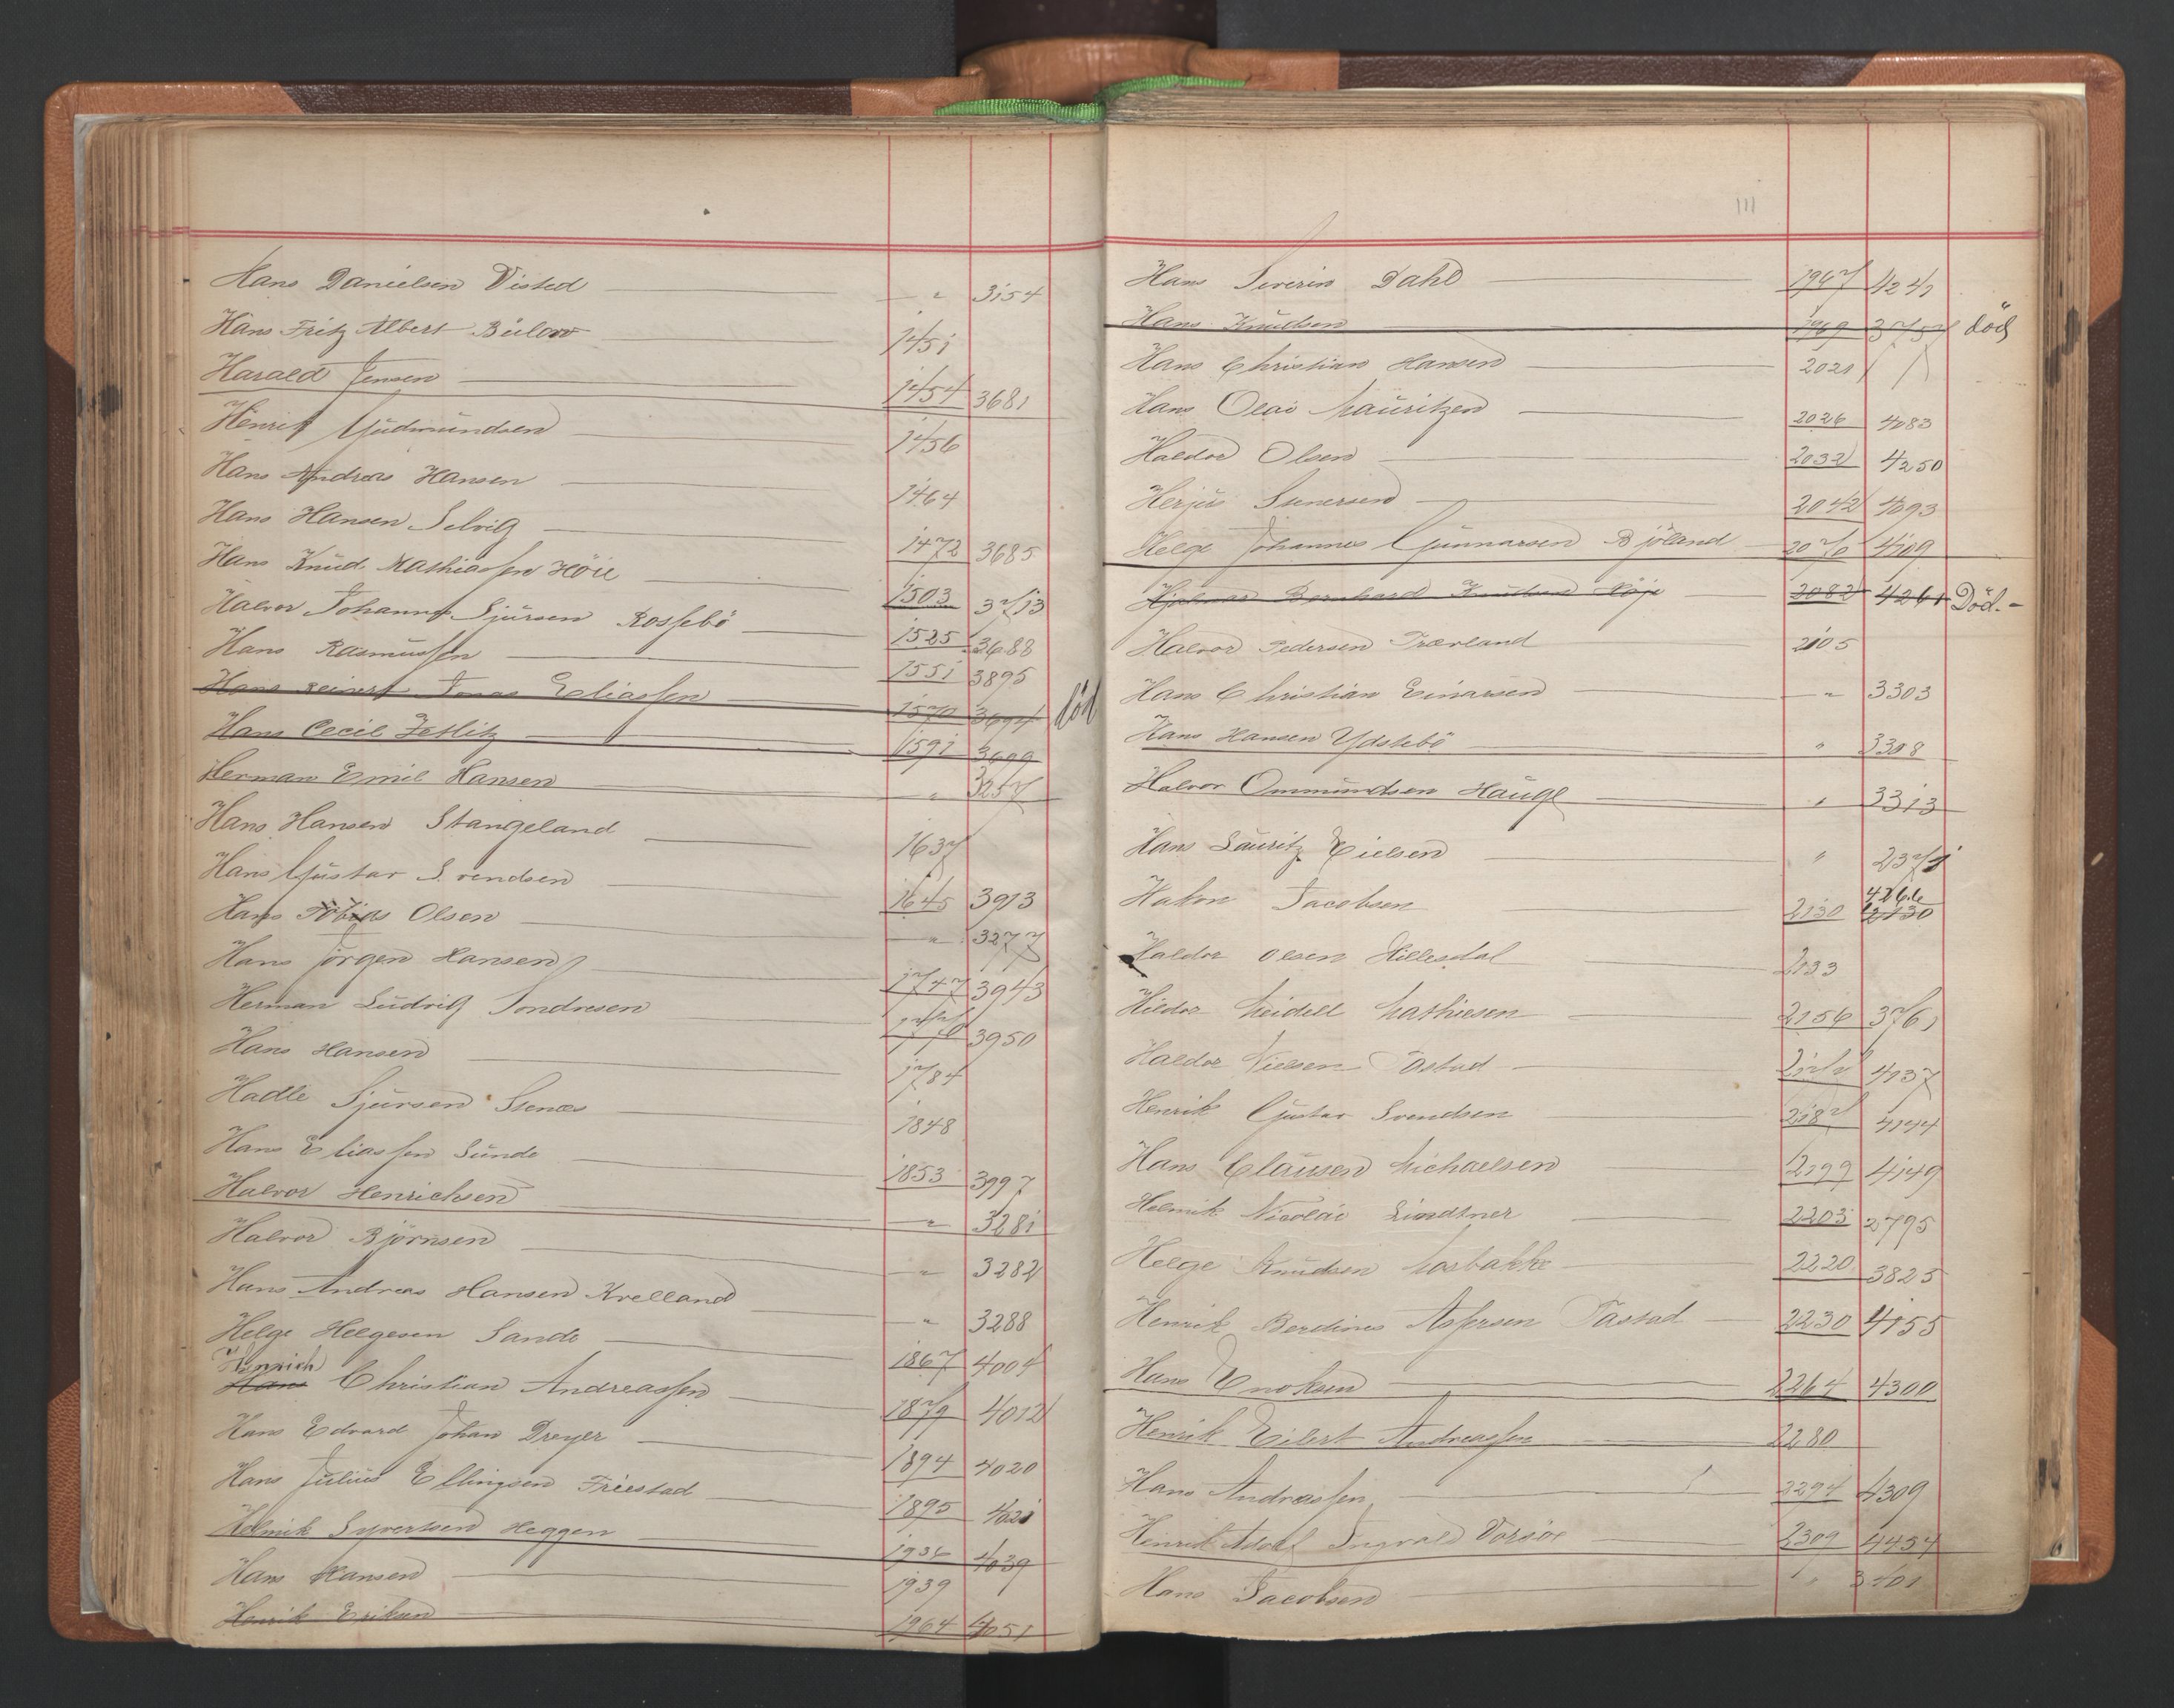 Hans Danielsen Visted — " 3154
Hans Fritz Albert Bülow — 1451
Harald Jensen — 1454 3681
Henrik Gudmundsen — 1456
Hans Andreas Hansen — 1464
Hans Hansen Selvig — 1472 3685
Hans Knud Mathiassen Höie — 1503 3713
Halvor Johannes Sjursen Rossebö — 1525 3688
Hans Rasmussen — 1551 3895
Hans Reinert Jonas Eliassen — 1570 3694 död
Hans Cecil Zetlitz — 1591 3699
Herman Emil Hansen — " 3257
Hans Hansen Stangeland — 1637
Hans Gustav Svendsen — 1645 3913
Hans Tobias Olsen — " 3277
Hans Jörgen Hansen — 1747 3943
Herman Ludvig Tondresen — 3950
Hans Hansen — 1784
Hadle Sjursen Stenæs — 1848
Hans Eliassen Sunde — 1853 3997
Halvor Henrichsen — " 3281
Halvor Björnsen — " 3282
Hans Andreas Hansen Kvelland — " 3288
Helge Helgesen Sande — 1867 4004
Henrich
Hans Christian Andreassen — 1879 4012
Hans Edvard Johan Dreyer — 1894 4020
Hans Julius Ellingsen Friestad — 1895 4021
Helmik Syvertsen Heggen — 1936 4039
Hans Hansen — 1939
Henrik Eriksen — 1964 4051
111
Hans Severin Dahl — 1967 4241
Hans Knudsen — 1969 3757 död
Hans Christian Hansen — 2021
Hans Olai Mauritzen — 2026 4083
Haldor Olsen — 2032 4250
Herjus Sunersen — 2042 4093
Helge Johannes Gunnarsen Bjöland — 2070 4109
Hjalmar Bernhard Knudsen Höje — 2082 4261 Död.-
Halvor Pedersen Træeland — 2105
Hans Christian Einarsen — " 3303
Hans Hansen Ydstebö — " 3308
Halvor Ommundsen Hauge — " 3313
Hans Lauritz Eielsen — " 2371
4266
Hakon Jacobsen — 2130 2130
Haldor Olsen Hillesdal — 2133
Hildor Meidell Mathiesen — 2156 3761
Haldor Nielsen Tastad — 4137
Henrik Gustav Svendsen — 2187 4144
Hans Clausen Michaelsen — 2199 4149
Helmik Nicolai Lindtner — 2203 2795
Helge Knudsen Mosbakke — 2220 3825
Henrik Berdines Assersen Tastad — 2230 4155
Hans Enoksen — 2264 4300
Henrik Eilert Andreassen — 2280
Hans Andreassen — 2294 4309
Hinrik Adolf Ingvald Vorsöe — 2309 4454
Hans Jacobsen — " 3401